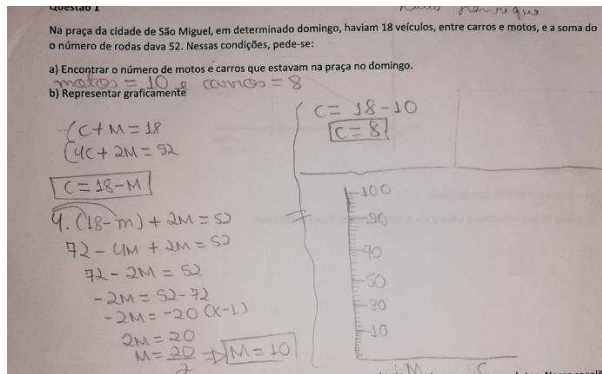 Questão 1
Henrique
Na praça da cidade de São Miguel, em determinado domingo, haviam 18 veículos, entre carros e motos, e a soma do
o número de rodas dava 52. Nessas condições, pede-se:
a) Encontrar o número de motos e carros que estavam na praça no domingo.
motos = 10 e carros = 8
b) Representar graficamente
C + M = 18
4C + 2M = 52
C = 18 - M
4. (18 - m) + 2M = 52
72 - 4M + 2M = 52
72 - 2M = 52
-2M = 52 - 72
-2M = -20 (x-1)
2M = 20
M = 20 ⇒ M = 10
2
C = 18 - 10
C = 8
100
90
90
50
30
10
M C